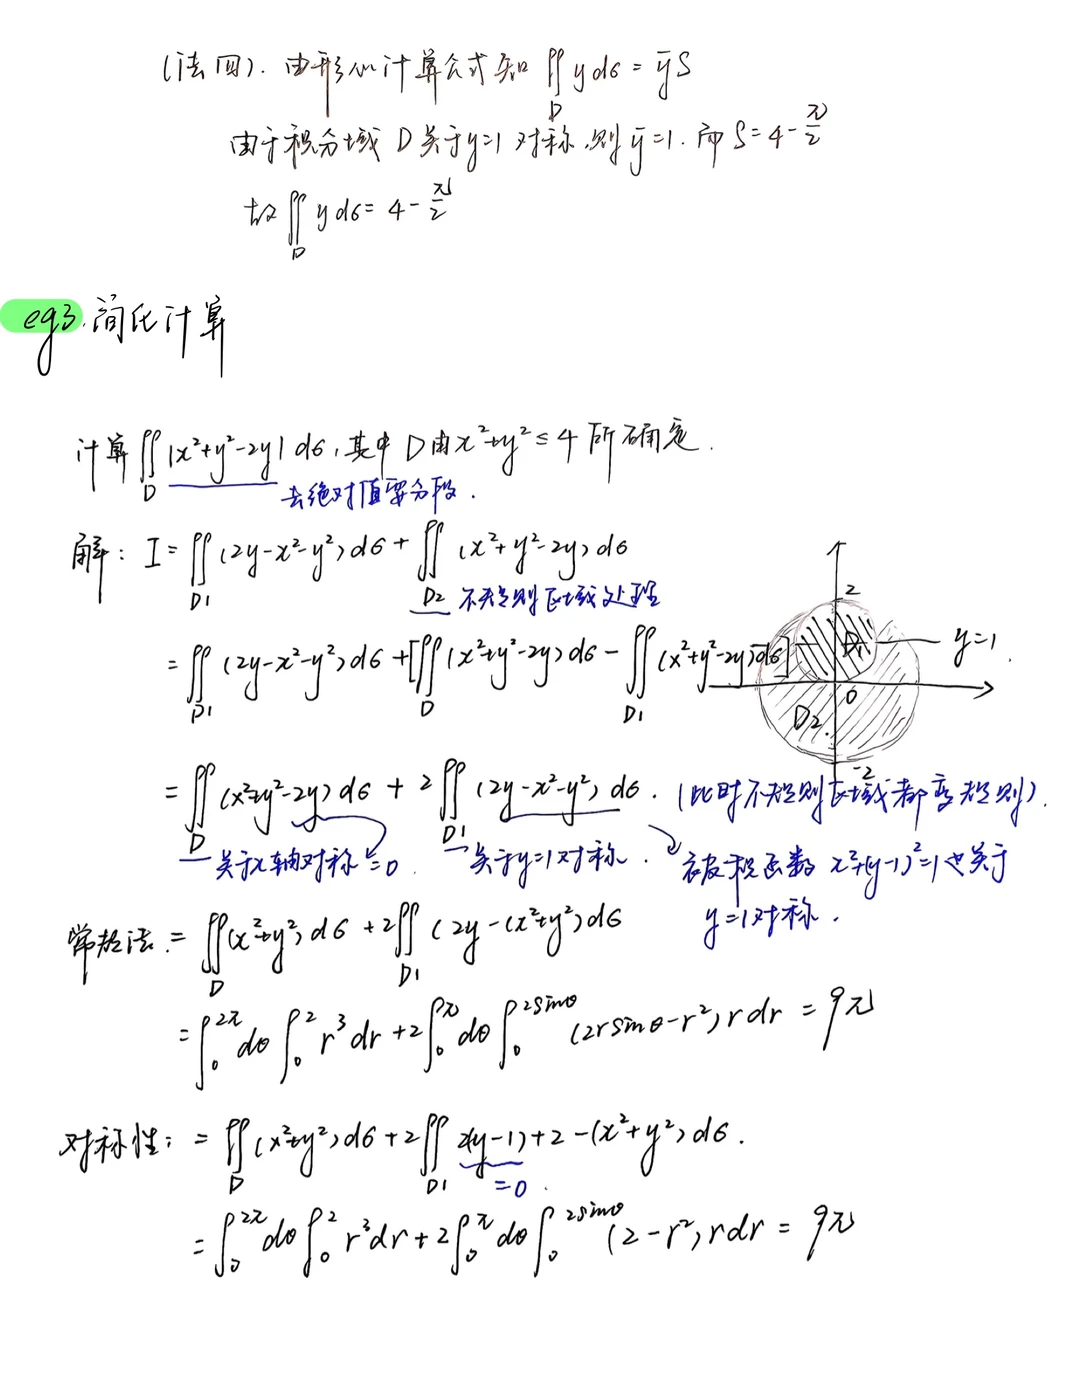 (法四). 由形心计算公式知 ∬_D y dσ = ȳS
由于积分域 D 关于y=1 对称, 则 ȳ=1. 而 S=4-π/2
故 ∬_D y dσ = 4-π/2
eg3. 简化计算
计算 ∬_D |x²+y²-2y| dσ, 其中 D由x²+y²≤4 所确定.
去绝对值要分段.
解: I = ∬_D1 (2y-x²-y²) dσ + ∬_D2 (x²+y²-2y) dσ
不规则区域处理
= ∬_D1 (2y-x²-y²) dσ + [∬_D (x²+y²-2y) dσ - ∬_D1 (x²+y²-2y) dσ]
2
D1
y=1.
0
D2.
-2
= ∬_D (x²+y²-2y) dσ + 2∬_D1 (2y-x²-y²) dσ. (此时不规则区域都变规则).
关于x轴对称 =0 关于y=1对称. 被积函数 x²+(y-1)²=1也关于
y=1对称.
常规法: = ∬_D (x²+y²) dσ + 2∬_D1 (2y-(x²+y²) dσ
= ∫_0^2π dθ ∫_0^2 r³dr + 2∫_0^π dθ ∫_0^2sinθ (2rsinθ-r²) rdr = 9π
对称性: = ∬_D (x²+y²) dσ + 2∬_D1 2(y-1)+2-(x²+y²) dσ.
=0.
= ∫_0^2π dθ ∫_0^2 r³dr + 2∫_0^π dθ ∫_0^2sinθ (2-r²) rdr = 9π